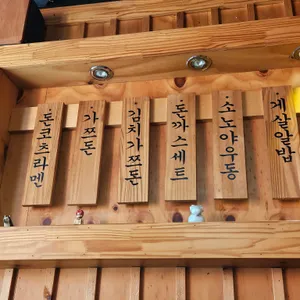 돈코츠라멘
가쯔돈
김치가쯔돈
돈까스세트
소노야우동
게살알밥